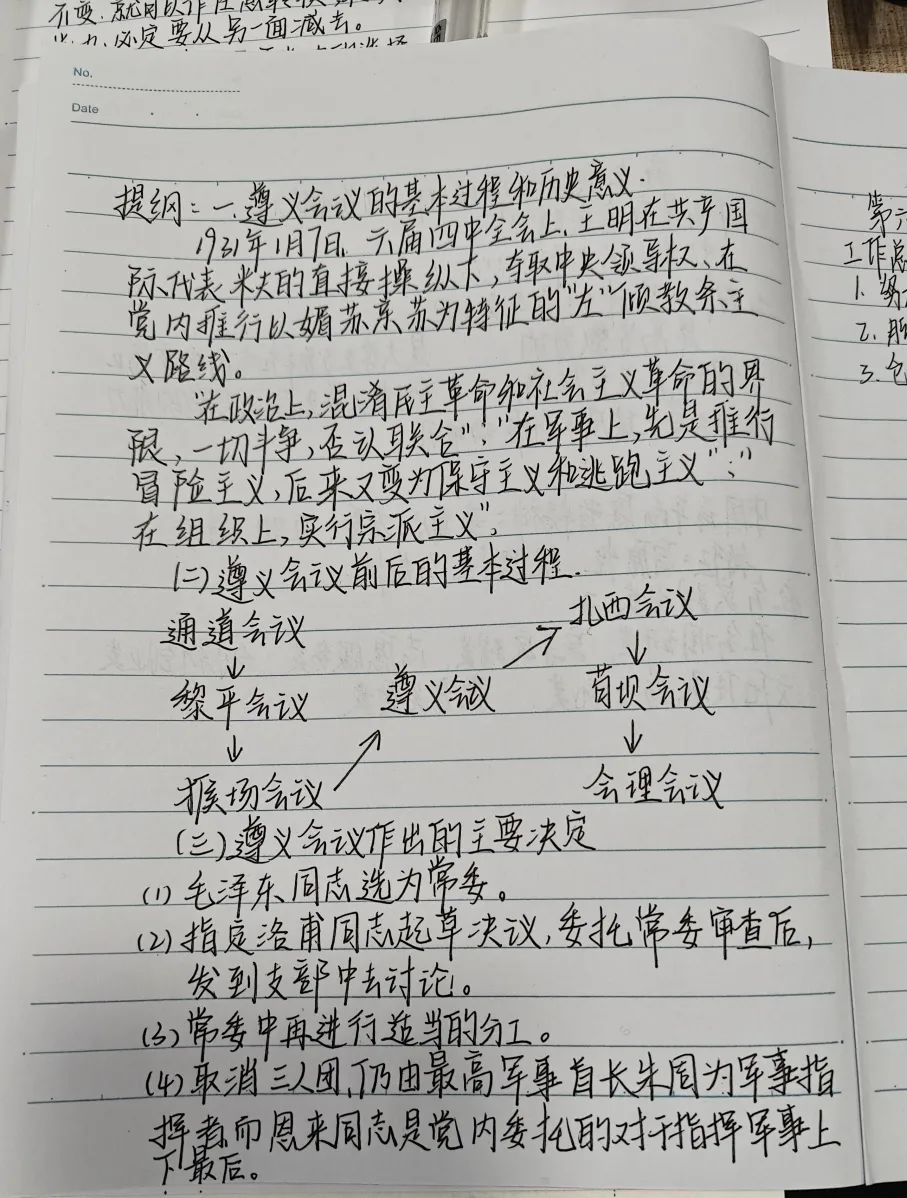 不变,就可以作任意
必定要从另一面减去。
No.
Date
提纲:一.遵义会议的基本过程和历史意义.
1931年1月7日,六届四中全会上,王明在共产国
际代表米夫的直接操纵下,夺取中央领导权、在
党内推行以媚苏亲苏为特征的"左"倾教条主
义路线。
"在政治上,混淆民主革命和社会主义革命的界
限,一切斗争,否认联合";"在军事上,先是推行
冒险主义,后来又变为保守主义和逃跑主义";"
在组织上,实行宗派主义",
(二)遵义会议前后的基本过程.
通道会议
↓
黎平会议
↓
猴场会议
↗
遵义会议
↗
扎西会议
↓
苟坝会议
↓
会理会议
(三)遵义会议作出的主要决定
(1)毛泽东同志选为常委。
(2)指定洛甫同志起草决议,委托常委审查后,
发到支部中去讨论。
(3)常委中再进行适当的分工。
(4)取消三人团,仍由最高军事首长朱周为军事指
挥者而恩来同志是党内委托的对于指挥军事上
下最后。
第六
工作总
1.
2.
3.